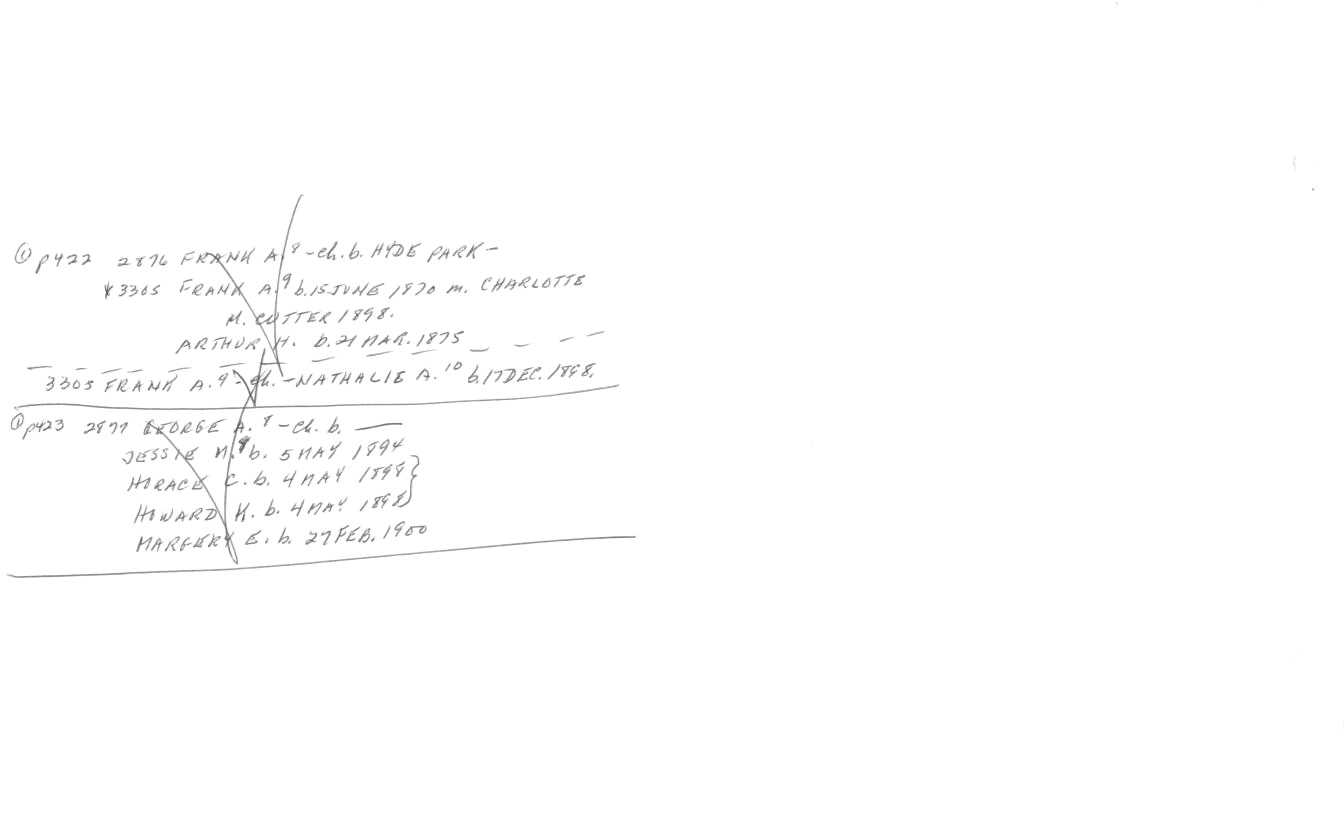 ① p422 2876 FRANK A.⁸ - ch. b. HYDE PARK -
3305 FRANK A.⁹ b. 15 JUNE 1870 m. CHARLOTTE
M. CUTTER 1898.
ARTHUR H. b. 21 MAR. 1875
3305 FRANK A.⁹ - ch. - NATHALIE A.¹⁰ b. 17 DEC. 1898.
① p423 2877 GEORGE A.⁸ - ch. b. —
JESSIE M.⁹ b. 5 MAY 1894
HORACE C. b. 4 MAY 1898 }
HOWARD K. b. 4 MAY 1898 }
MARGERY E. b. 27 FEB. 1900